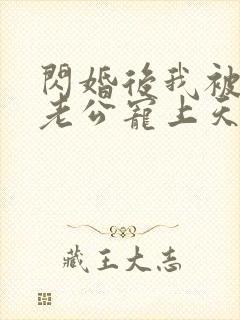 閃婚後我被
老公寵上天
藏王大志